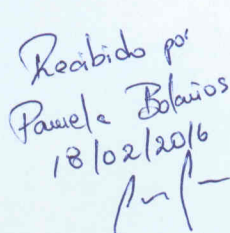 Recibido por
Pamela Bolaños
18/02/2016